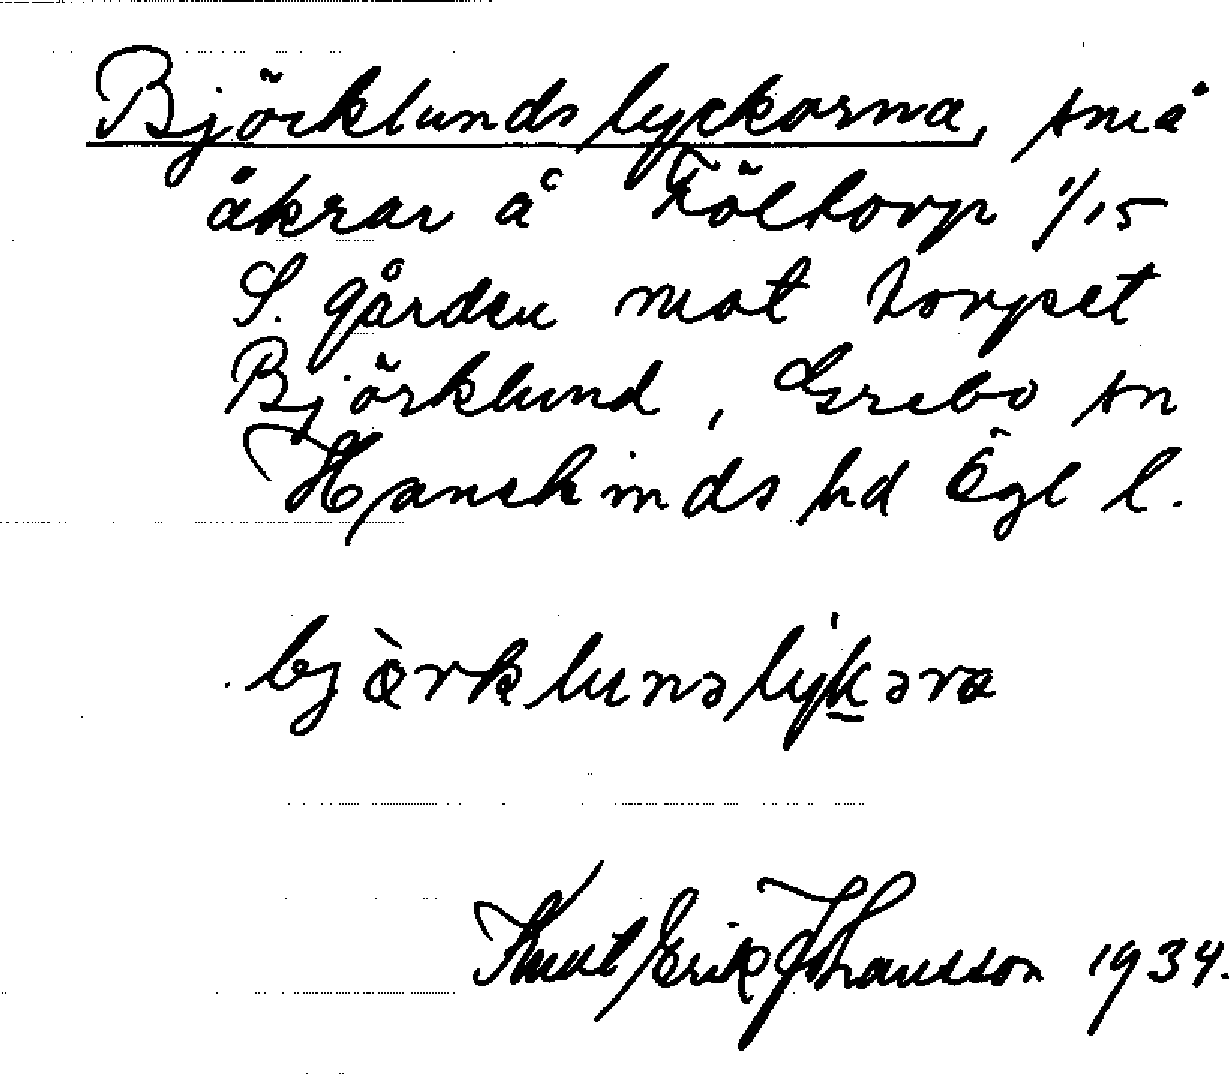 Björklundslyckorna, små
åkrar å Föltorp 1/15
S. gården mot torpet
Björklund, Grebo sn
Hanekinds hd Ögl l.
bjòrklunsly̍ḵəra
Knut Erik Johansson 1934.